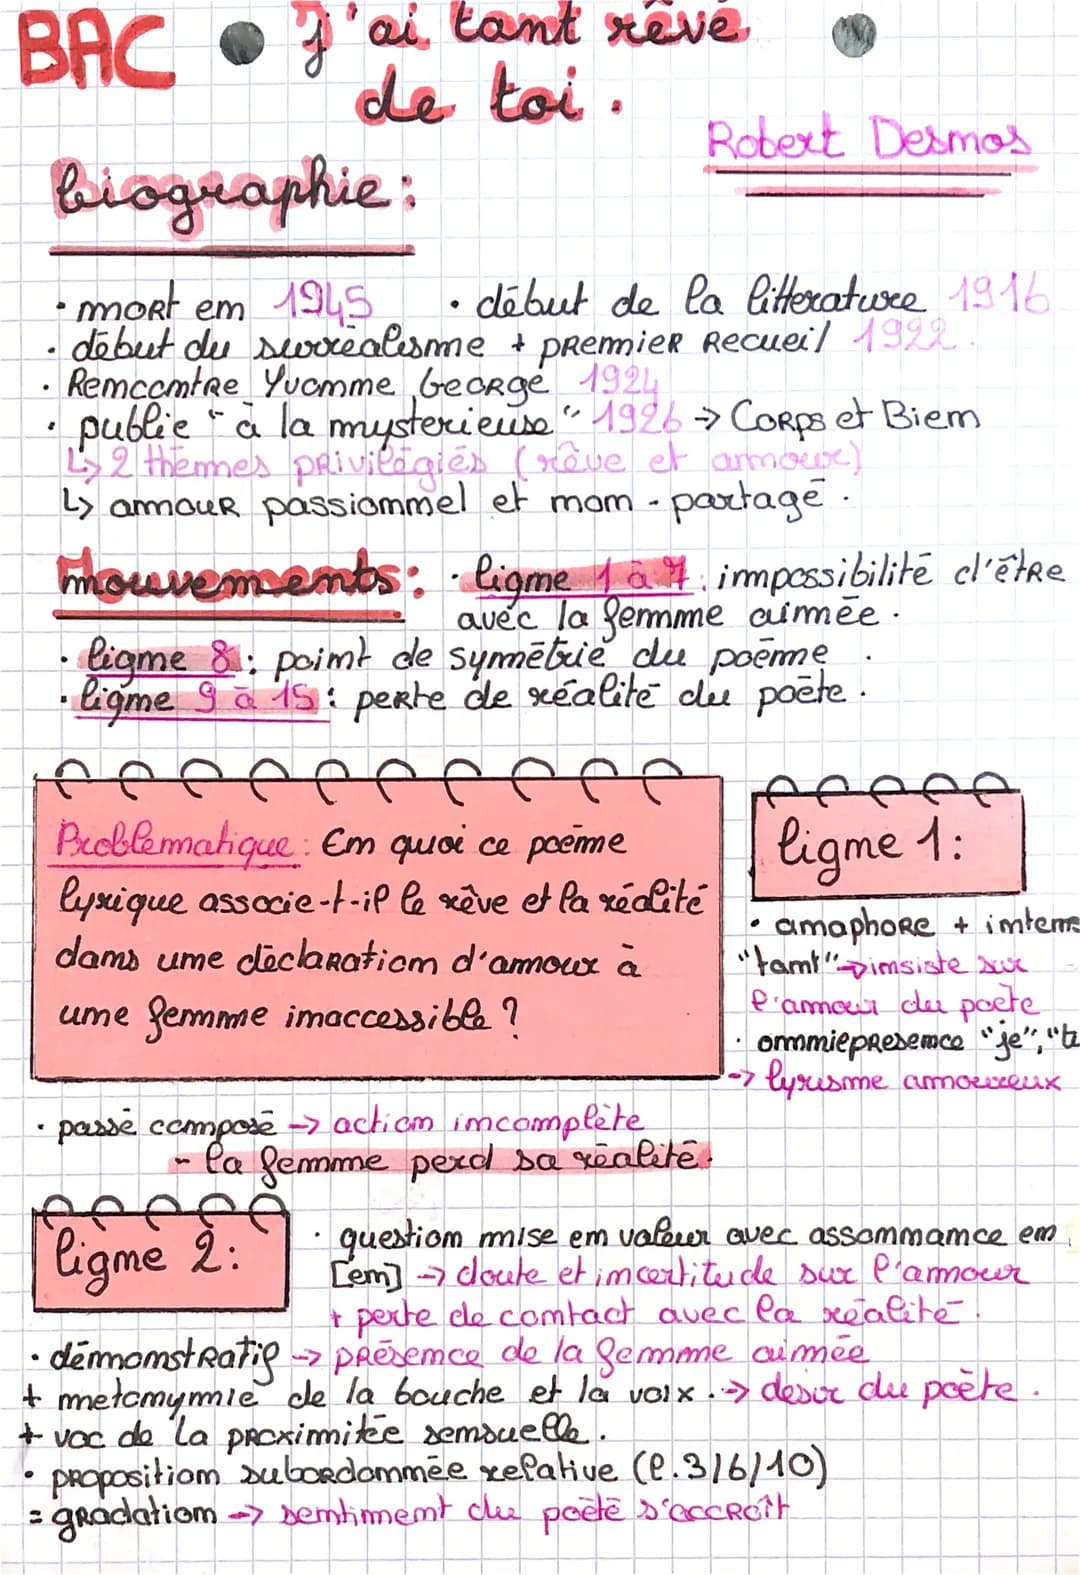 BAC • J'ai tant rêvé
de toi.
Robert Desnos
biographie :
• mort en 1945 • début de la litterature 1916
• début du surréalisme + premier recueil 1922.
• Rencontre Yvonne George 1924
• publie "à la mysterieuse" 1926 → Corps et Bien
↳ 2 thèmes privilégiés (rêve et amour)
↳ amour passionnel et non-partagé.
mouvements : • ligne 1 à 7 : impossibilité d'être
avec la femme aimée.
• ligne 8 : point de symétrie du poème.
• ligne 9 à 15 : perte de réalité du poète.
Problematique : En quoi ce poème
lyrique associe-t-il le rêve et la réalité
dans une déclaration d'amour à
une femme inaccessible ?
ligne 1 :
• anaphore + intens
"tant" → insiste sur
l'amour du poete
• omniepresence "je", "t
→ lyrisme amoureux
• passé composé → action incomplète
- la femme perd sa réalité.
ligne 2 :
• question mise en valeur avec assonnance en
[en] → doute et incertitude sur l'amour
+ perte de contact avec la réalité.
• démonstratif → présence de la femme aimée
+ metonymie de la bouche et la voix. → desir du poète.
+ voc de la proximitée sensuelle.
• proposition subordonnée relative (l.3/6/10)
= gradation → sentiment du poète s'accroît